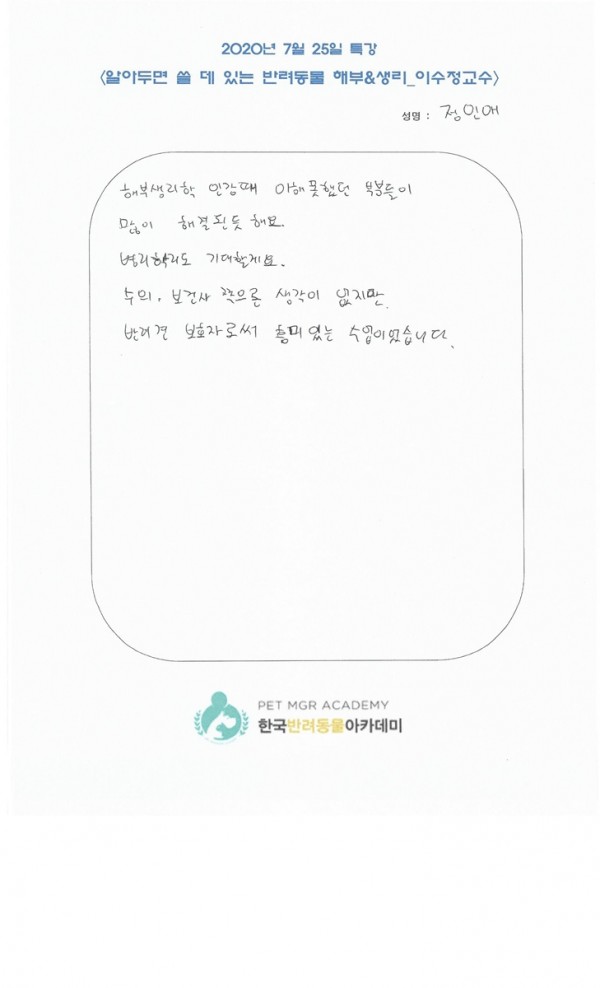 2020년 7월 25일 특강
<알아두면 쓸 데 있는 반려동물 해부&생리_이수정교수>
성명 : 정인애
해부생리학 인강때 이해못했던 부분들이
많이 해결된듯 해요.
병리학리도 기대할게요.
수의, 보건사 쪽으론 생각이 없지만
반려견 보호자로써 흥미있는 수업이었습니다.
PET MGR ACADEMY
한국반려동물아카데미